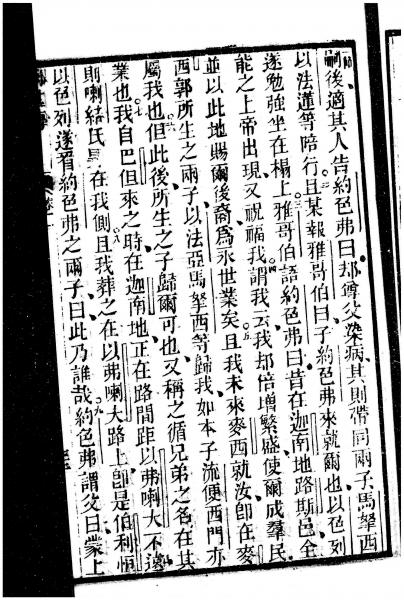 嗣後適其人告約色弗曰却爾父染病其則帶同兩子馬拏西
以法蓮等陪行且某報雅哥伯曰子約色弗來就爾也以色列
遂勉強坐在榻上雅哥伯語約色弗曰昔在迦南地路斯邑全
能之上帝出現又祝福我謂我云我却倍增繁盛使爾成羣民
並以此地賜爾後裔爲永世業矣且我未來麥西就汝卽在麥
西郭所生之兩子以法亞馬拏西等歸我如本子流便西門亦
屬我也但此後所生之子歸爾可也又稱之循兄弟之名在其
業也我自巴但來之時在迦南地正在路間距以弗喇大不遠
則喇結氏在我側且我葬之在以弗喇大路上卽是伯利恒
以色列遂看約色弗之兩子曰此乃誰哉約色弗謂父曰蒙上